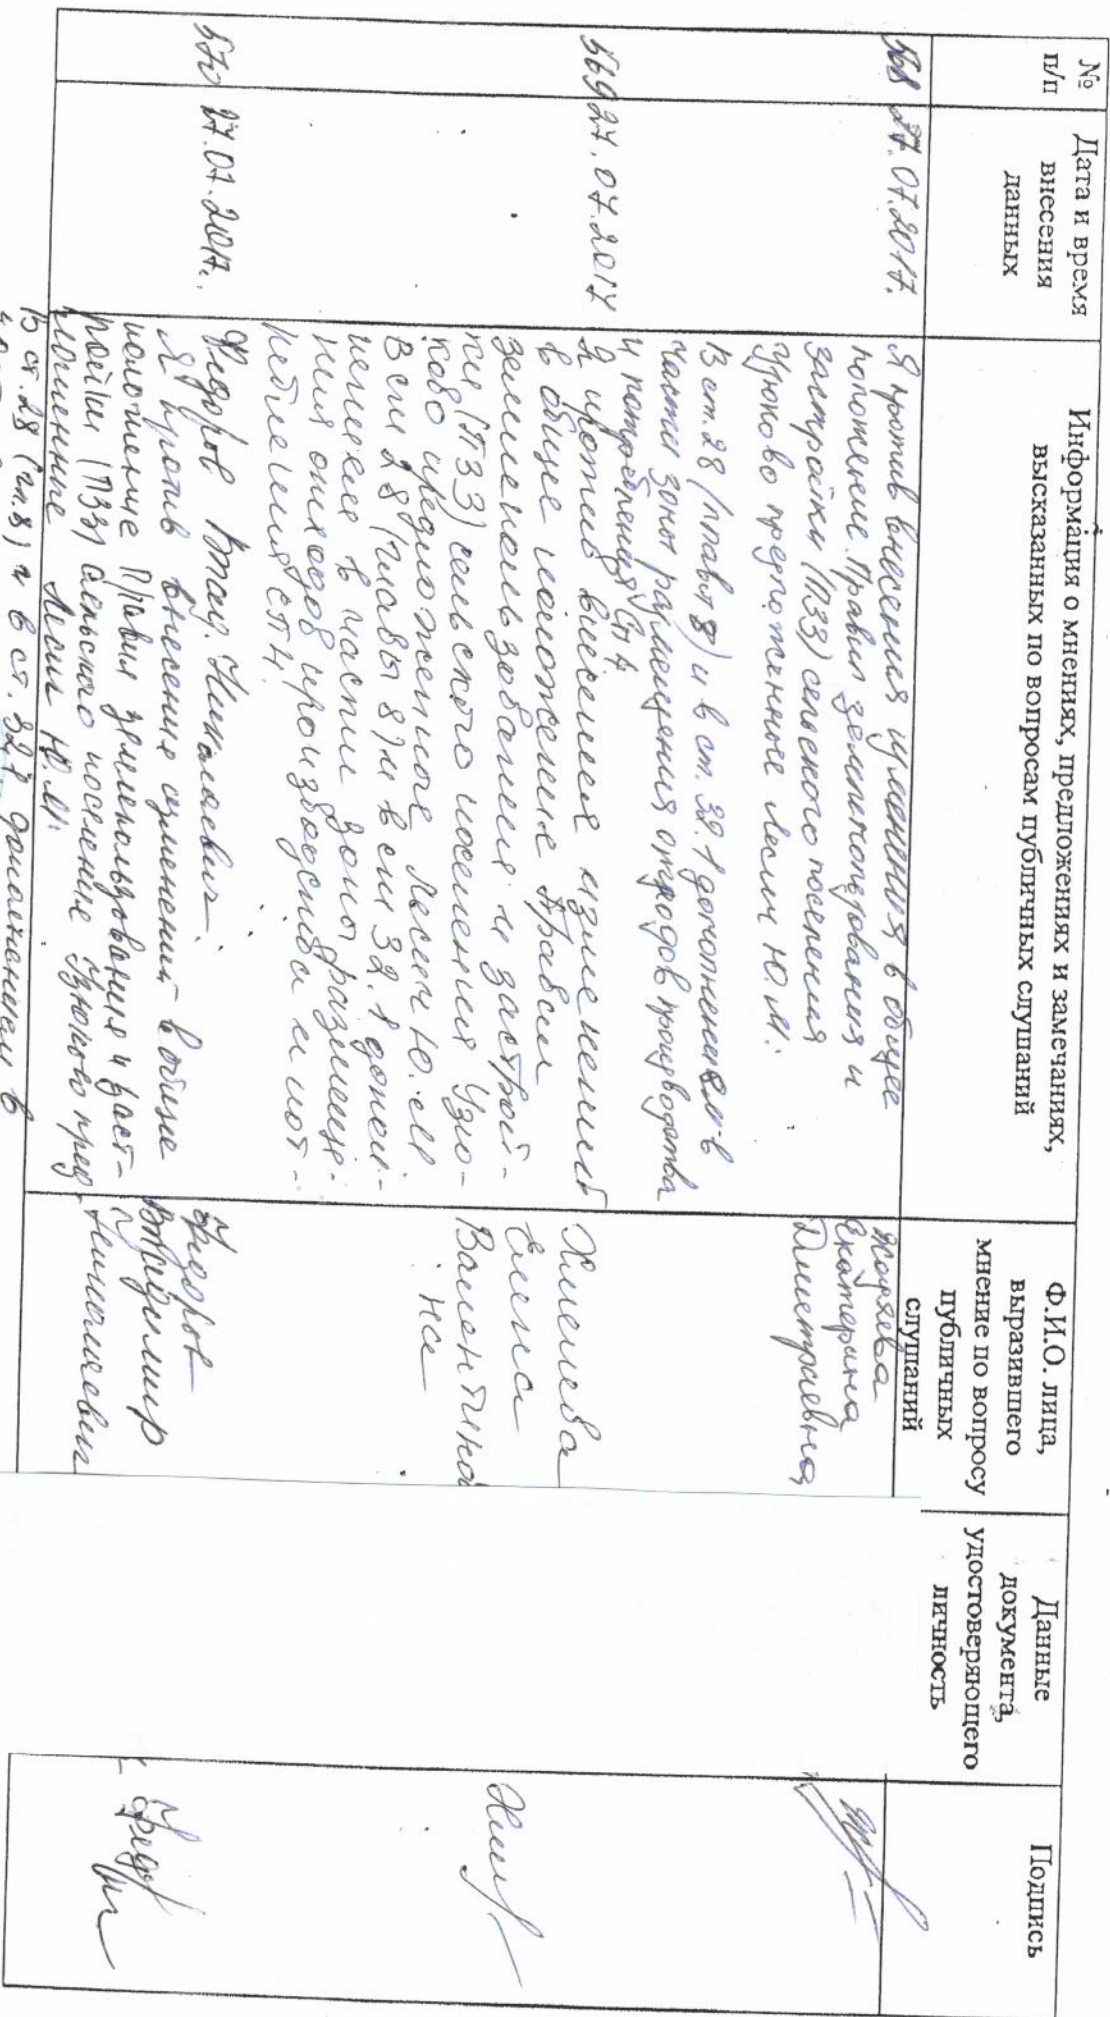 №
п/п
Дата и время
внесения
данных
Информация о мнениях, предложениях и замечаниях,
высказанных по вопросам публичных слушаний
Ф.И.О. лица,
выразившего
мнение по вопросу
публичных
слушаний
Данные
документа,
удостоверяющего
личность
Подпись
568 27.07.2017.
Я против внесения изменения в общее
положение Правил землепользования и
застройки (ПЗЗ) сельского поселения
Узюково предложенное Лесин Ю.М.
В ст.28 (глава 8) и в ст. 32.1 дополнением в
части зоны размещения отходов производства
и потребления СП4
Екатерина
Дмитриевна
569 27.07.2017
Я против внесения изменений
в общее положение Правил
землепользования и застрой-
ки (ПЗЗ) сельского поселения Узю-
ково предложенное Лесин Ю.М.
В ст 28 (главы 8) и в ст 32.1 допол-
нение в части зоны размеще-
ния отходов производства и пот-
ребления СП4.
Хмелева
Елена
Валентинов
на
570 27.07.2017.
Федоров Влад. Николаевич.
Я против внесение изменений в общие
положение Правил землепользования и заст-
ройки (ПЗЗ) сельского поселение Узюково пред-
ложенные Лесин Ю.М.
В ст.28 (гл.8) и в ст. 32.1 дополнением в
Федоров
Владимир
Николаевич